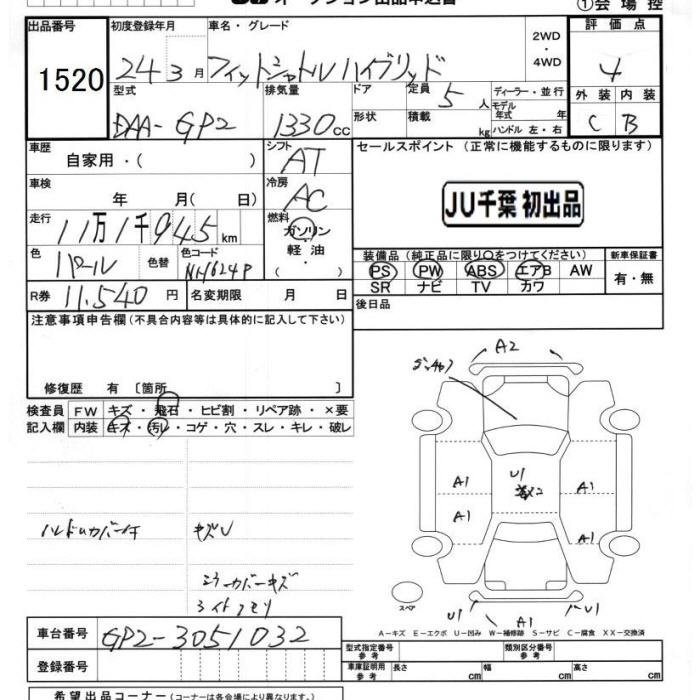 ①会場控
出品番号 初度登録年月 車名・グレード 2WD ・ 4WD 評価点
1520 24 3月 フィットシャトルハイブリッド 4
型式 排気量 ドア 定員 5人 ディーラー・並行 外装 内装
DAA-GP2 1330cc 形状 積載 kg モデル年式 年 ハンドル 左・右 C B
車歴 自家用・( ) シフト AT セールスポイント (正常に機能するものに限ります)
車検 年 月( 日) 冷房 AC JU千葉 初出品
走行 11万1千945km 燃料 ガソリン 軽油 ( )
色 パール 色替 色コード NH624P
装備品 (純正品に限り○をつけてください) 新車保証書
PS PW ABS エアB AW 有・無
SR ナビ TV カワ
R券 11,540円 名変期限 月 日 後日品
注意事項申告欄 (不具合内容等は具体的に記入して下さい)
修復歴 有 〔箇所 〕
検査員 FW キズ・飛石・ヒビ割・リペア跡・×要
記入欄 内装 キズ・汚レ・コゲ・穴・スレ・キレ・破レ
A2
A1
U1
A1
A1
A1
キズU
ミラーカバーキズ
スペア
U1 A1 U1
A-キズ E-エクボ U-凹み W-補修跡 S-サビ C-腐食 XX-交換済
車台番号 GP2-3051032
型式指定番号 参考 類別区分番号 参考
登録番号 車庫証明用 参考 長さ cm 幅 cm 高さ cm
希望出品コーナー (コーナーは各会場により異なります)